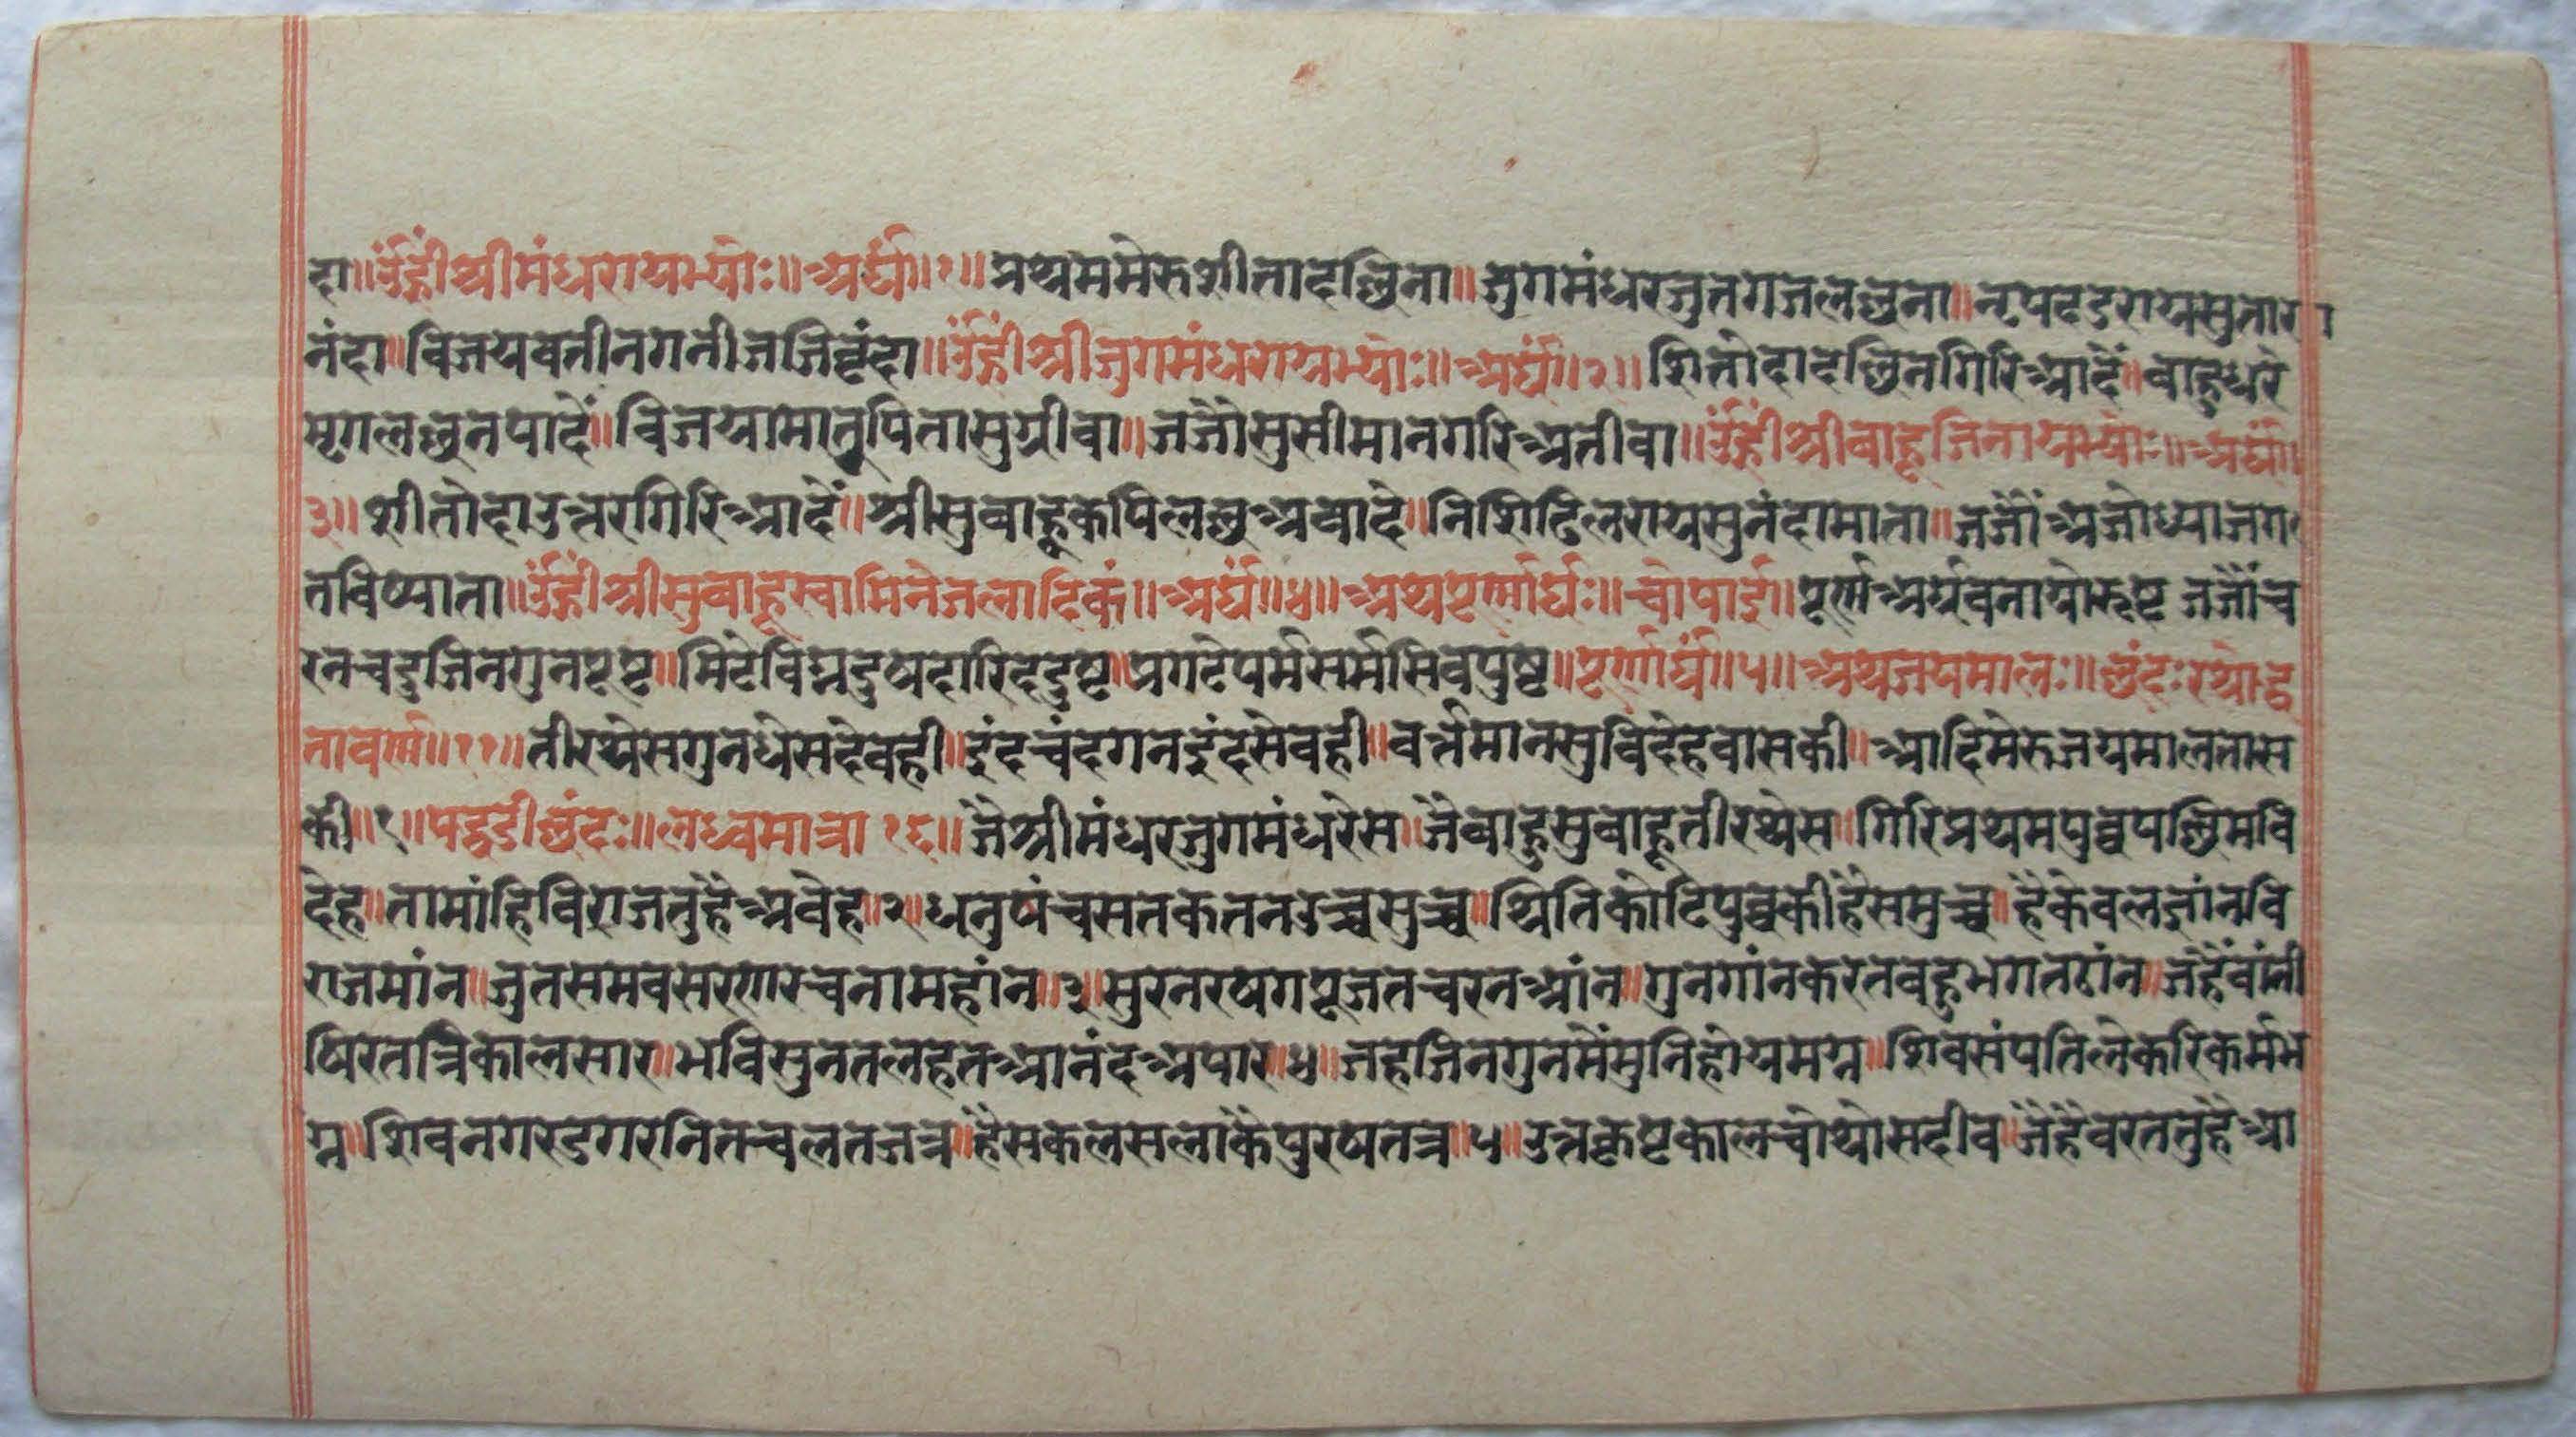 दा॥ॐह्रींश्रीमंधरायभ्योः॥अर्घं॥१॥प्रथममेरुशीतादछिना॥जुगमंधरजुतगजलछना॥नृपदडरायसुतार
नंदा॥विजयवतीनगनीजजिवृंदा॥ॐह्रींश्रीजुगमंधरायभ्योः॥अर्घं॥२॥शितोदादछिनगिरिआदें॥बाहुधरे
मृगलछुनपादें॥विजयामातुपितासुग्रीवा॥जजौंसुसीमानगरिअतीवा॥ॐह्रींश्रीबाहूजिनायभ्योः॥अर्घं॥
३॥शीतोदाउत्तरगिरिआदें॥श्रीसुबाहुकपिलछअबादे॥निशिढिलरायसुनंदामाता॥जजौंअजोध्याजग
तविष्याता॥ॐह्रींश्रीसुबाहूस्वामिनेजलादिकं॥अर्घं॥४॥अथपूर्णार्घः॥चोपाई॥पूर्णअर्घबनायोरूष्ट जजौंच
रनचदुजिनगुनपूष्ट॥मिटेविघ्नदुषदारिददुष्ट॥प्रगटेपर्मसर्मसिवपुष्ट॥पूर्णार्घं॥५॥अथजयमालः॥छंदःरथोद्ध
तावर्ण॥११॥तीरथेसगुनधेसदेवही॥इंदचंदगनइंदसेवही॥वर्त्तमानसुविदेहवासकी॥आदिमेरुजयमालतास
की॥१॥पद्धडीछंदः॥लध्वमात्रा १६॥जैश्रीमंधरजुगमंधरेस॥जैबाहुसुबाहूतीरथेस॥गिरिप्रथमपुव्वपश्चिमवि
देह॥तामांहिविराजतुहैंअबेह॥२॥धनुषंचसतकतनउच्चसुच्च॥थितिकोटिपुव्वकीहैंसमुच्च॥हैंकेवलज्ञांनवि
राजमांन॥जुतसमवसरणरचनामहांन॥३॥सुरनरषगपूजतचरनआंन॥गुनगांनकरतबहुभगतठांन॥जंहंहैंबांनी
षिरतत्रिकालसार॥भविसुनतलहतआनंदअपार॥४॥जहजिनगुनमैंमुनिहोयमग्न॥शिवसंपतिलेकरिकर्मभ
ग्न॥शिवनगरडगरनितचलतजत्र॥हैंसकलसलाकेपुरषतत्र॥५॥उत्तकृष्टकालचोथोसदीव॥जंहंहैंवरततुहैंआ